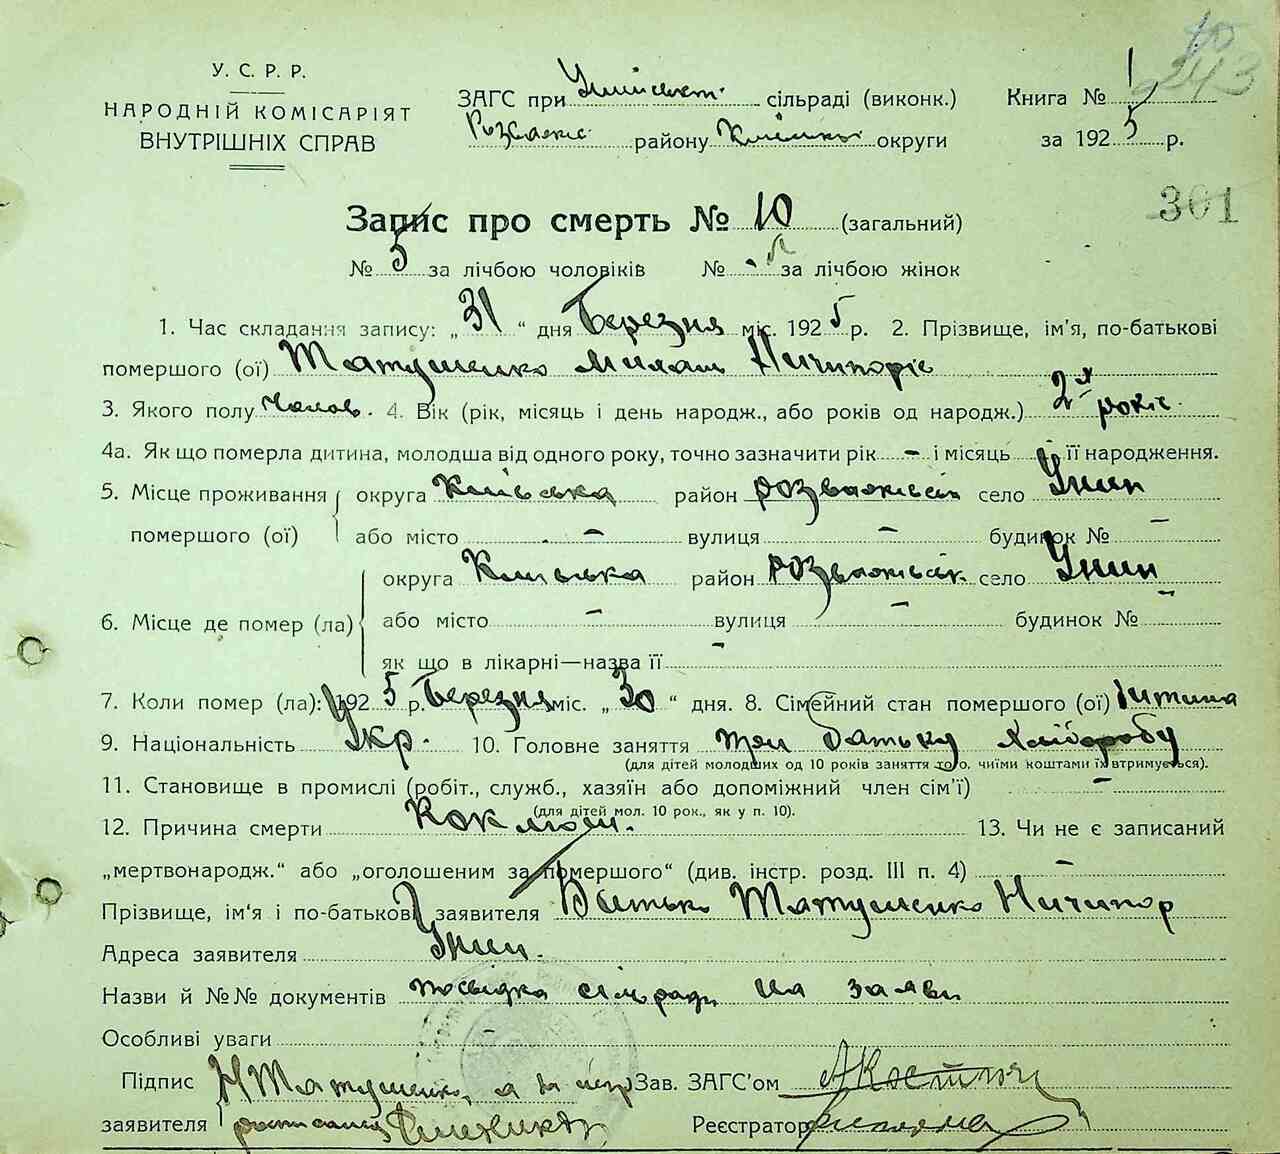 243
У. С. Р. Р.
НАРОДНІЙ КОМІСАРІЯТ
ВНУТРІШНІХ СПРАВ
ЗАГС при сільраді (виконк.)
району округи
Книга № 1
за 1925 р.
301
Запис про смерть № 10 (загальний)
№ 5 за лічбою чоловіків № за лічбою жінок
1. Час складання запису: „31“ дня Березня міс. 1925 р. 2. Прізвище, ім'я, по-батькові
помершого (ої) Татушенко Милат Ничипорів
3. Якого полу чолов. 4. Вік (рік, місяць і день народж., або років од народж.) 2х років
4а. Як що померла дитина, молодша від одного року, точно зазначити рік - і місяць її народження.
5. Місце проживання помершого (ої) округа Київська район розважівськ село Унин
або місто - вулиця - будинок № -
6. Місце де помер (ла) округа Київська район розважівськ. село Унин
або місто - вулиця - будинок № -
як що в лікарні—назва її -
7. Коли помер (ла): 1925 р. Березня міс. „30“ дня. 8. Сімейний стан помершого (ої) дитина
9. Національність Укр. 10. Головне заняття при батьку хліборобу
(для дітей молодших од 10 років заняття того, чиїми коштами їх втримується).
11. Становище в промислі (робіт., служб., хазяїн або допоміжний член сім'ї) -
(для дітей мол. 10 рок., як у п. 10).
12. Причина смерти Коклюш. 13. Чи не є записаний
„мертвонародж.“ або „оголошеним за помершого“ (див. інстр. розд. III п. 4) -
Прізвище, ім'я і по-батькові заявителя Батько Татушенко Ничипор
Адреса заявителя Унин.
Назви й №№ документів посвідка сільради на заяви
Особливі уваги -
Підпис заявителя Н Татушенко, а за
Зав. ЗАГС'ом
Реєстратор